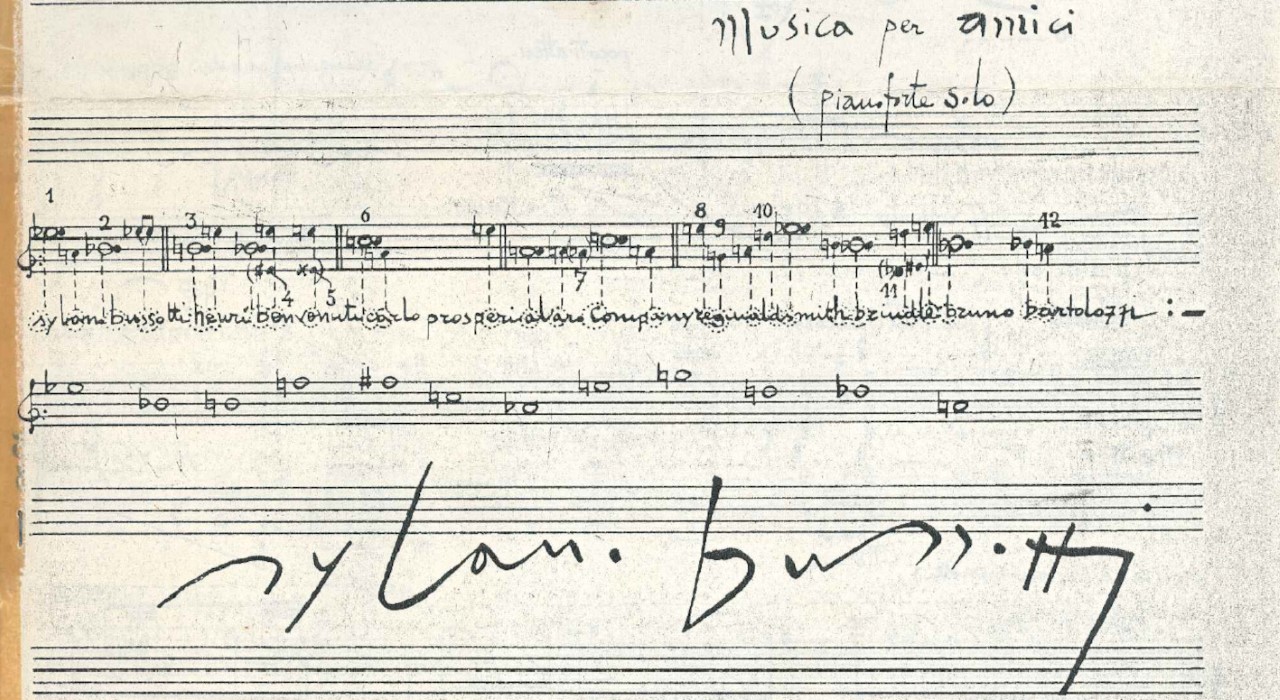 musica per amici
(pianoforte solo)
1
2 3 6 8 9 10 12
7
4 5 11
sylano bussotti henri benvenuti carlo prosperi alvaro company reginald smith brindle bruno bartolozzi :–
sylano bussotti